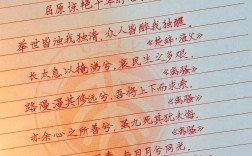 屈原惊艳十年的
举世皆浊我独清，众人皆醉我独醒。
《楚辞·渔父》
长太息以掩涕兮，哀民生之多艰。
《离骚》
路漫漫其修远兮，吾将上下而求索。
《离骚》
亦余心之所善兮，虽九死其犹未悔。
《离骚》
与日月兮同光。